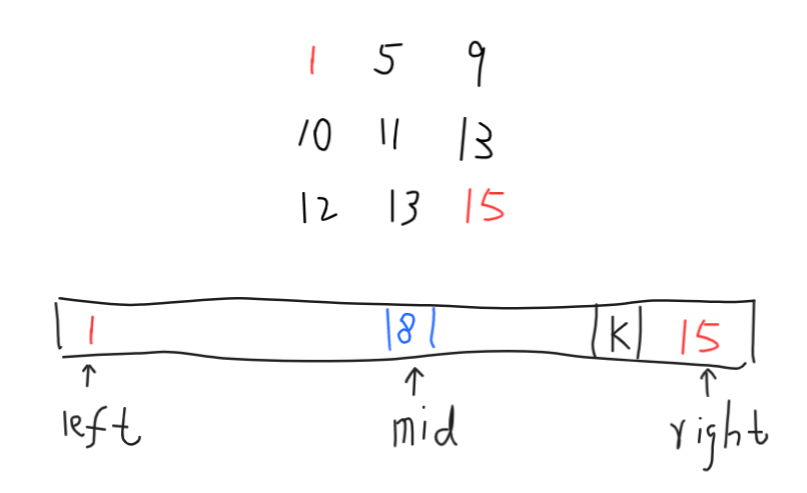 1 5 9
10 11 13
12 13 15
1 8 K 15
left mid right